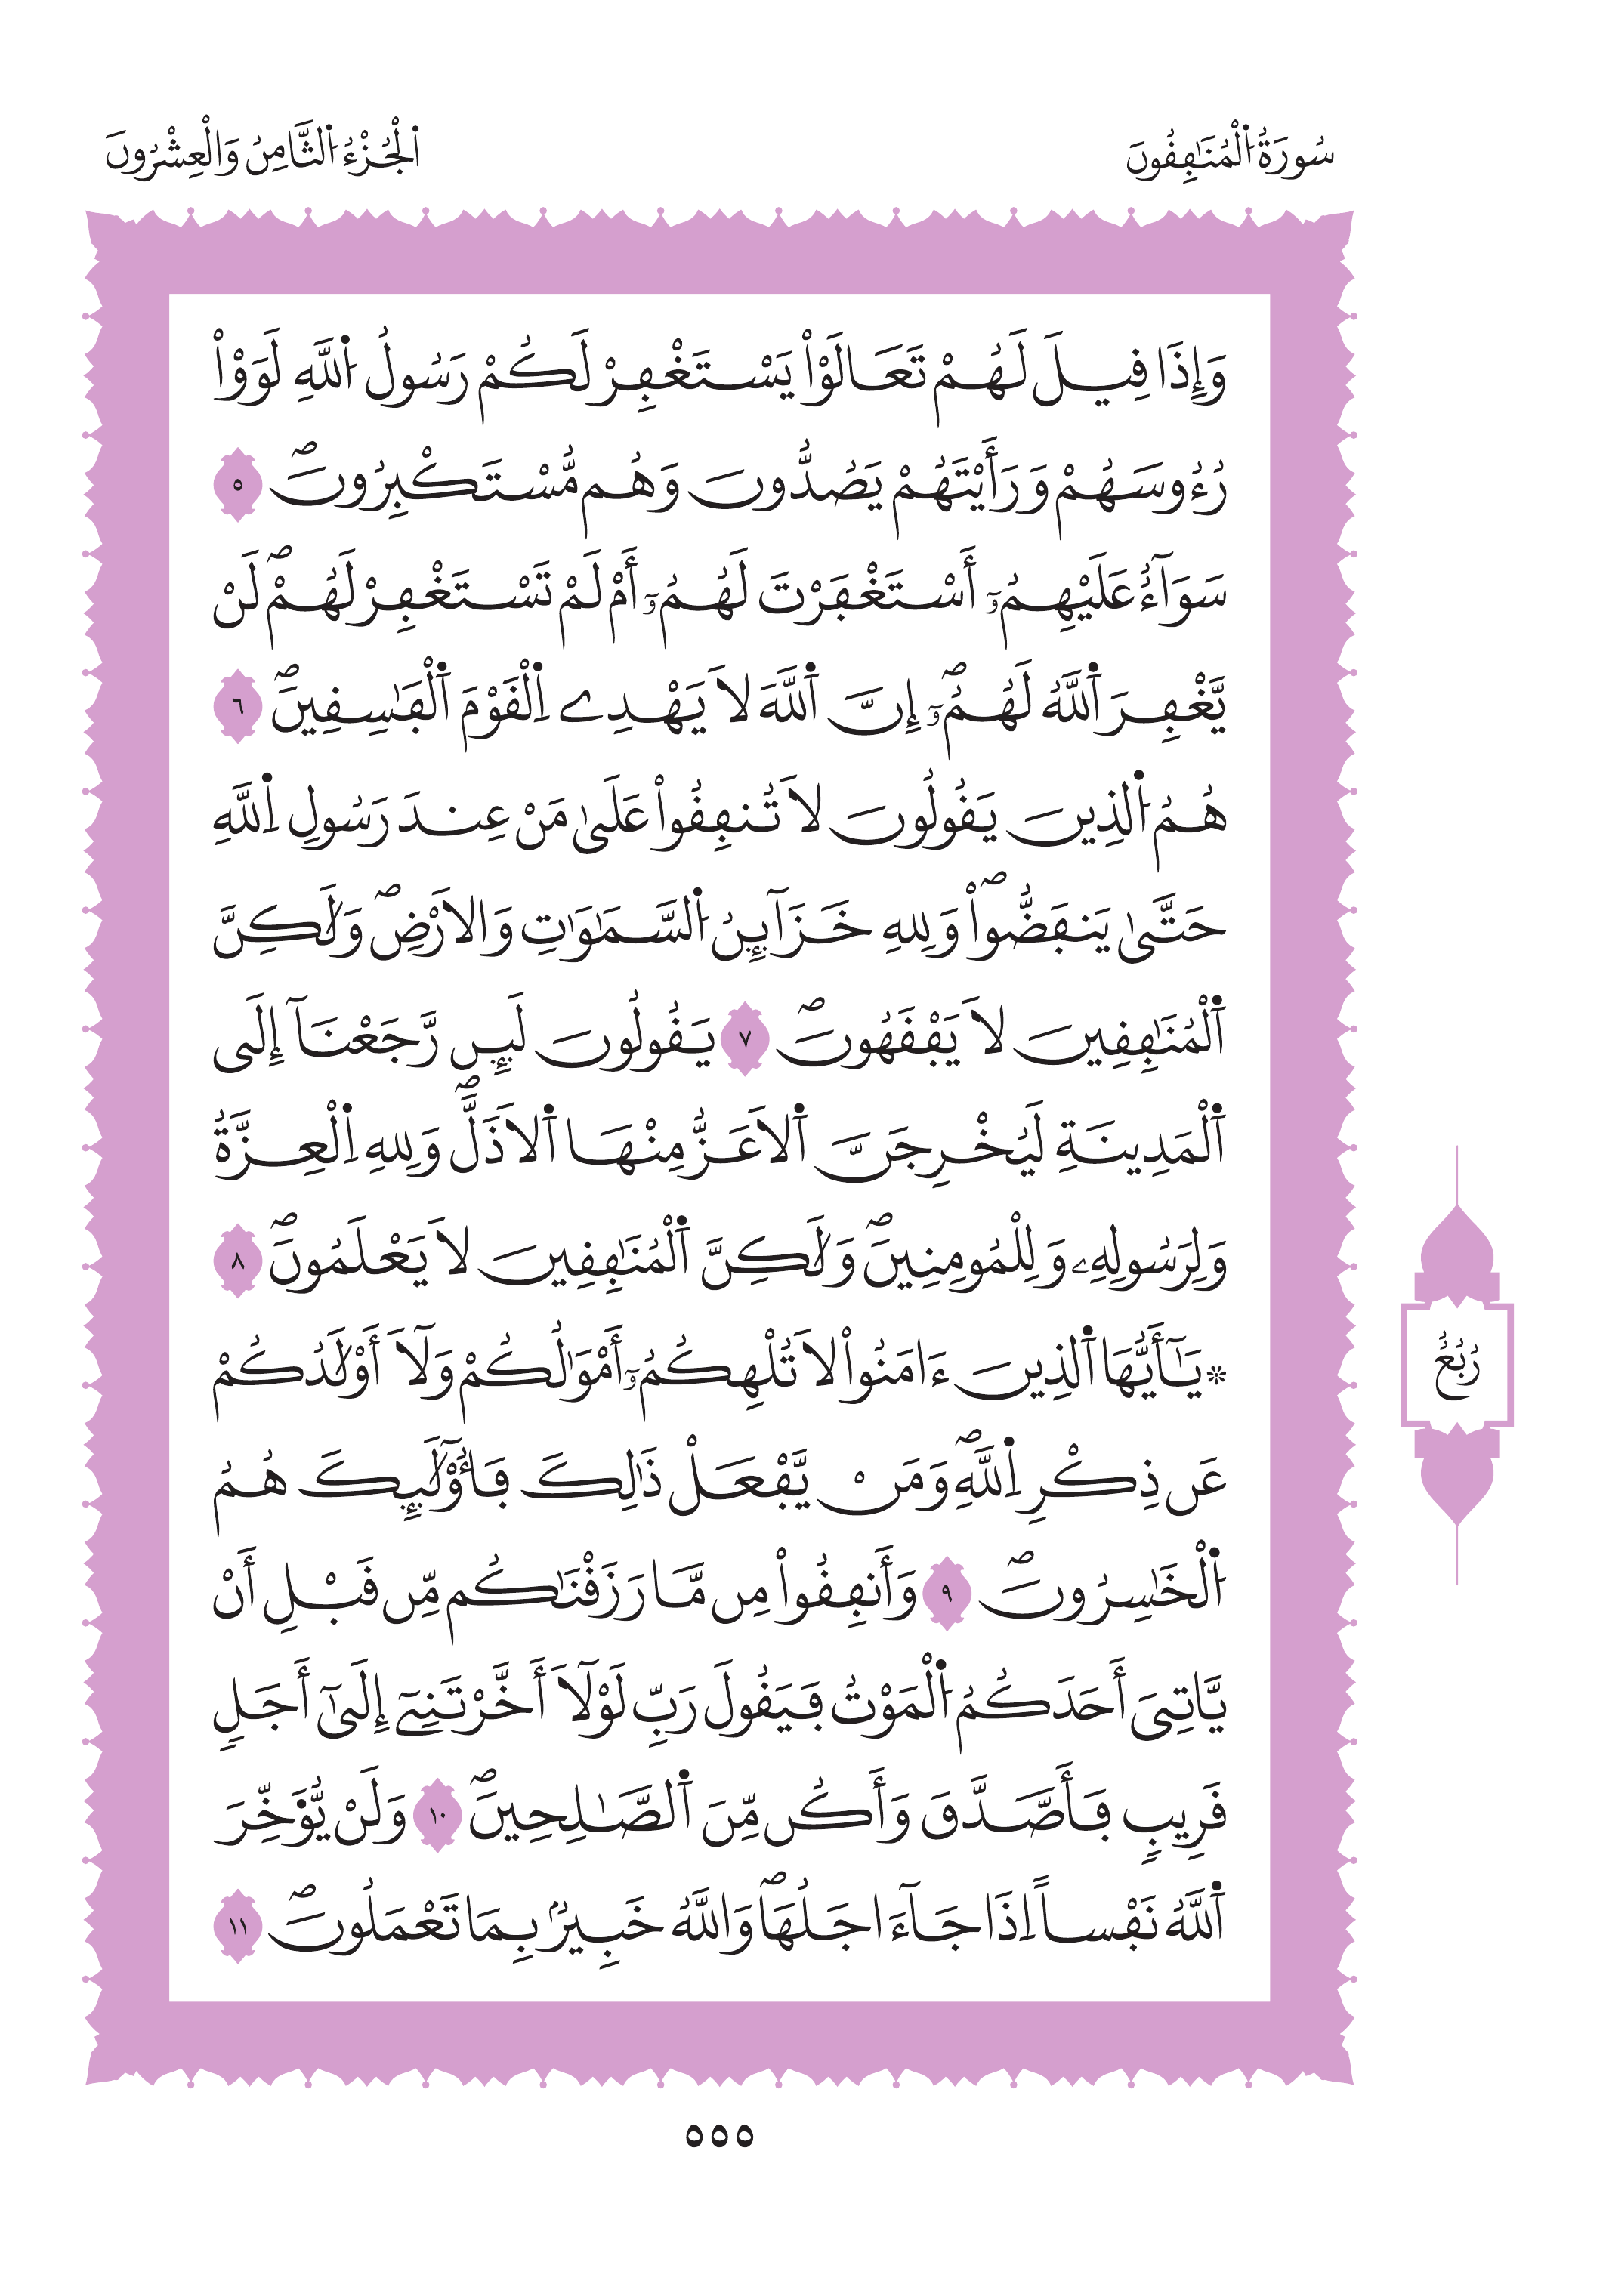 سُورَةُ اُ۬لْمُنَٰفِقُونَ
اَ۬لْجُزْءُ اُ۬لثَّامِنُ وَالْعِشْرُونَ
وَإِذَا قِيلَ لَهُمْ تَعَالَوْاْ يَسْتَغْفِرْ لَكُمْ رَسُولُ اُ۬للَّهِ لَوَوْاْ
رُءُوسَهُمْ وَرَأَيْتَهُمْ يَصُدُّونَ وَهُم مُّسْتَكْبِرُونَۖ ٥
سَوَآءٌ عَلَيْهِمُۥٓ أَسْتَغْفَرْتَ لَهُمُۥٓ أَمْ لَمْ تَسْتَغْفِرْ لَهُمْۖ لَنْ
يَّغْفِرَ اَ۬للَّهُ لَهُمُۥٓۖ إِنَّ اَ۬للَّهَ لَا يَهْدِے اِ۬لْقَوْمَ اَ۬لْفَٰسِقِينَۖ ٦
هُمُ اُ۬لذِينَ يَقُولُونَ لَا تُنفِقُواْ عَلَىٰ مَنْ عِندَ رَسُولِ اِ۬للَّهِ
حَتَّىٰ يَنفَضُّواْۖ وَلِلهِ خَزَآئِنُ اُ۬لسَّمَٰوَٰتِ وَالَارْضِۖ وَلَٰكِنَّ
اَ۬لْمُنَٰفِقِينَ لَا يَفْقَهُونَۖ ٧ يَقُولُونَ لَئِن رَّجَعْنَآ إِلَى
اَ۬لْمَدِينَةِ لَيُخْرِجَنَّ اَ۬لَاعَزُّ مِنْهَا اَ۬لَاذَلَّۖ وَلِلهِ اِ۬لْعِزَّةُ
وَلِرَسُولِهِۦ وَلِلْمُومِنِينَۖ وَلَٰكِنَّ اَ۬لْمُنَٰفِقِينَ لَا يَعْلَمُونَۖ ٨
۞ يَٰٓأَيُّهَا اَ۬لذِينَ ءَامَنُواْ لَا تُلْهِكُمُۥٓ أَمْوَٰلُكُمْ وَلَآ أَوْلَٰدُكُمْ
عَن ذِكْرِ اِ۬للَّهِۖ وَمَنْ يَّفْعَلْ ذَٰلِكَ فَأُوْلَٰٓئِكَ هُمُ
اُ۬لْخَٰسِرُونَۖ ٩ وَأَنفِقُواْ مِن مَّا رَزَقْنَٰكُم مِّن قَبْلِ أَنْ
يَّاتِيَ أَحَدَكُمُ اُ۬لْمَوْتُ فَيَقُولَ رَبِّ لَوْلَآ أَخَّرْتَنِےٓ إِلَىٰٓ أَجَلٖ
قَرِيبٖ فَأَصَّدَّقَ وَأَكُن مِّنَ اَ۬لصَّٰلِحِينَۖ ١٠ وَلَنْ يُّؤَخِّرَ
اَ۬للَّهُ نَفْساً اِذَا جَآءَ اجَلُهَاۖ وَاللَّهُ خَبِيرُۢ بِمَا تَعْمَلُونَۖ ١١
رُبُعُ
٥٥٥